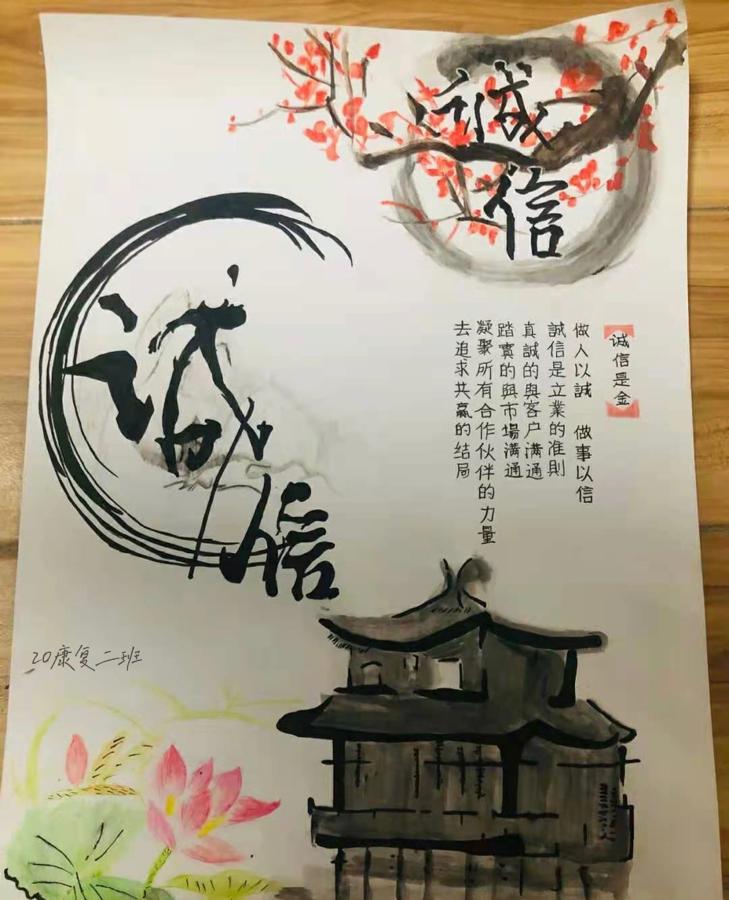 诚信
诚信
诚信是金
做人以誠 做事以信
誠信是立業的准則
真誠的與客户溝通
踏實的與市場溝通
凝聚所有合作伙伴的力量
去追求共赢的结局
20康复二班